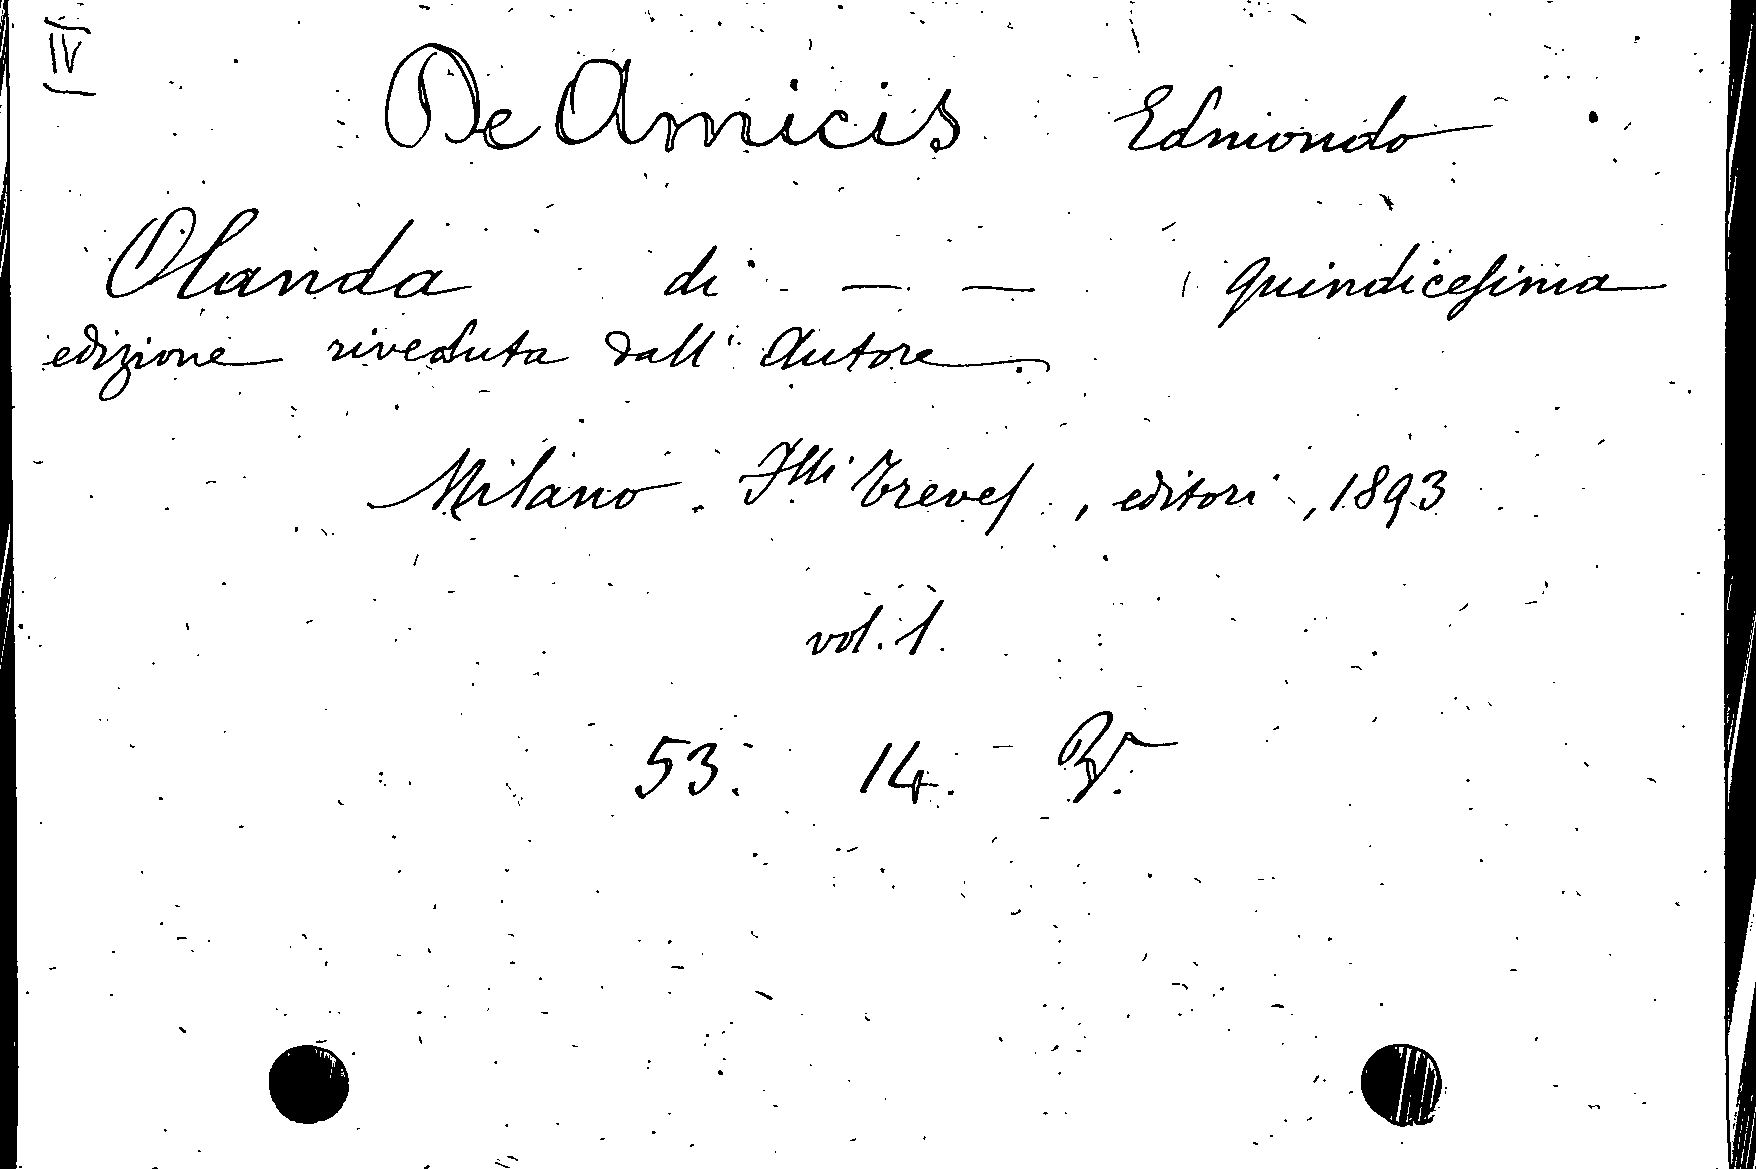 IV
De Amicis Edmondo
Olanda di — — quindicesima
edizione riveduta dall' Autore.
Milano. Flli Treves, editori, 1893
vol. 1.
53. 14.